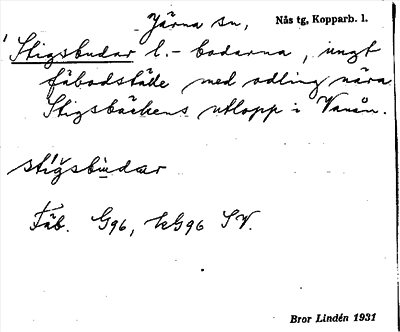 Järna sn, Nås tg, Kopparb. l.
Stigsbudar l. -bodarna, ungt
fäbodställe med odling nära
Stigsbäckens utlopp i Vanån.
stigsbudar
Fäb. G96, kG96 SV.
Bror Lindén 1931